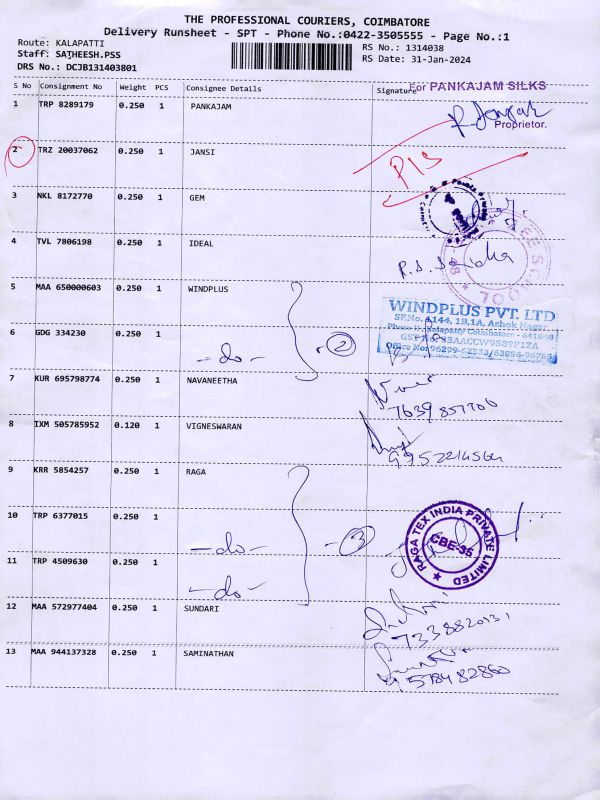 THE PROFESSIONAL COURIERS, COIMBATORE
Delivery Runsheet - SPT - Phone No.:0422-3505555 - Page No.:1
Route: KALAPATTI
Staff: SATHEESH.PSS
DRS No.: DCJB131403801
RS No.: 1314038
RS Date: 31-Jan-2024
S No Consignment No Weight PCS Consignee Details Signature
For PANKAJAM SILKS
1 TRP 8289179 0.250 1 PANKAJAM
Proprietor.
2 TRZ 20037062 0.250 1 JANSI
P13
3 NKL 8172770 0.250 1 GEM
4 TVL 7806198 0.250 1 IDEAL
SCHOOL
5 MAA 650000603 0.250 1 WINDPLUS
WINDPLUS PVT. LTD
SF.No. 1144, 1B,1A, Ashok Nagar,
Coimbatore - 641048
Office No: 96299-62533/63856-96755
6 GDG 334230 0.250 1 -do- 2
7 KUR 695798774 0.250 1 NAVANEETHA
8 IXM 505785952 0.120 1 VIGNESWARAN
9 KRR 5854257 0.250 1 RAGA
RAGA TEX INDIA PRIVATE LIMITED
CBE-35
10 TRP 6377015 0.250 1 -do- 3
11 TRP 4509630 0.250 1 -do-
12 MAA 572977404 0.250 1 SUNDARI
13 MAA 944137328 0.250 1 SAMINATHAN